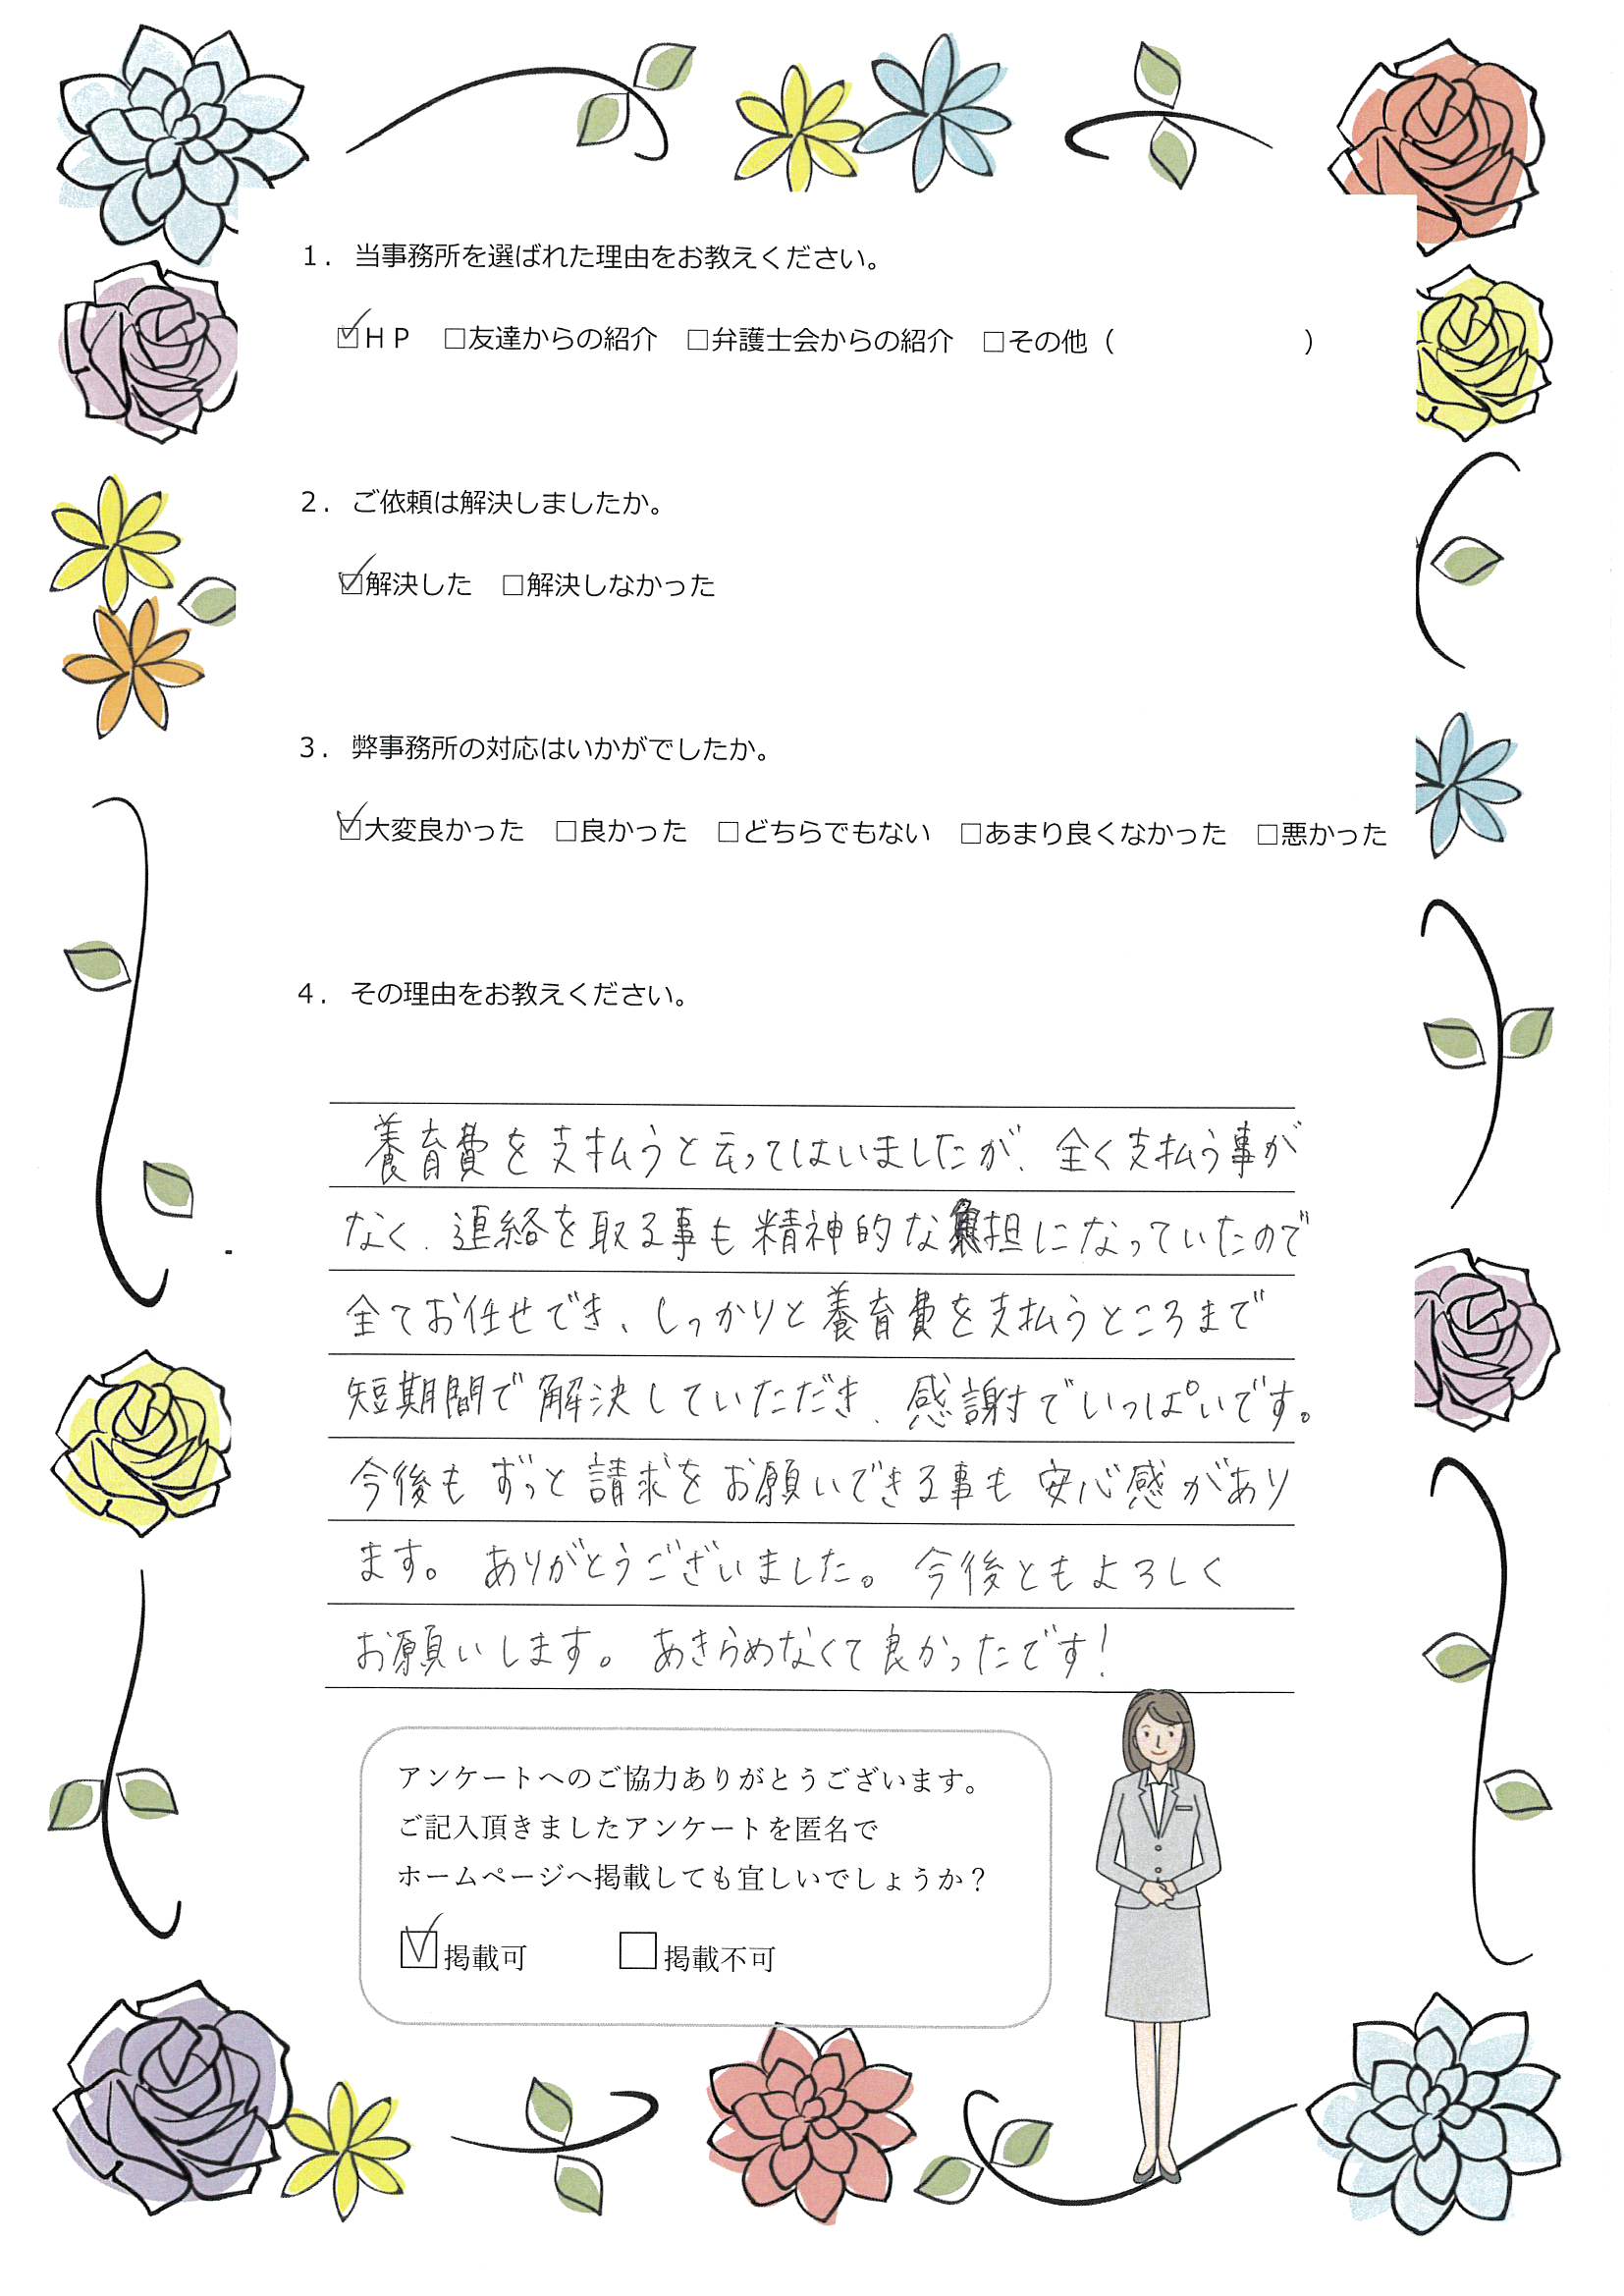 1. 当事務所を選ばれた理由をお教えください。
☑HP □友達からの紹介 □弁護士会からの紹介 □その他（ ）
2. ご依頼は解決しましたか。
☑解決した □解決しなかった
3. 弊事務所の対応はいかがでしたか。
☑大変良かった □良かった □どちらでもない □あまり良くなかった □悪かった
4. その理由をお教えください。
養育費を支払うと云ってはいましたが、全く支払う事が
なく、連絡を取る事も精神的な負担になっていたので
全てお任せでき、しっかりと養育費を支払うところまで
短期間で解決していただき、感謝でいっぱいです。
今後もずっと請求をお願いできる事も安心感があり
ます。ありがとうございました。今後ともよろしく
お願いします。あきらめなくて良かったです!
アンケートへのご協力ありがとうございます。
ご記入頂きましたアンケートを匿名で
ホームページへ掲載しても宜しいでしょうか？
☑掲載可 □掲載不可